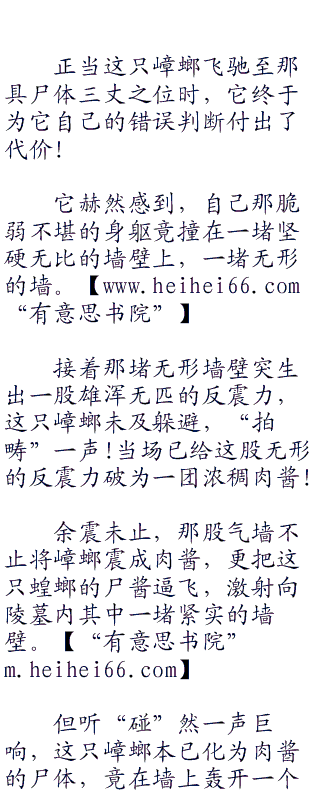 正当这只嶂螂飞驰至那
具尸体三丈之位时，它终于
为它自己的错误判断付出了
代价！
它赫然感到，自己那脆
弱不堪的身躯竟撞在一堵坚
硬无比的墙壁上，一堵无形
的墙。【www.heihei66.com
“有意思书院”】
接着那堵无形墙壁突生
出一股雄浑无匹的反震力，
这只嶂螂未及躲避，“拍
畴”一声！当场已给这股无形
的反震力破为一团浓稠肉酱！
余震未止，那股气墙不
止将嶂螂震成肉酱，更把这
只蝗螂的尸酱逼飞，激射向
陵墓内其中一堵紧实的墙
壁。【“有意思书院”
m.heihei66.com】
但听“碰”然一声巨
响，这只嶂螂本已化为肉酱
的尸体，竟在墙上轰开一个